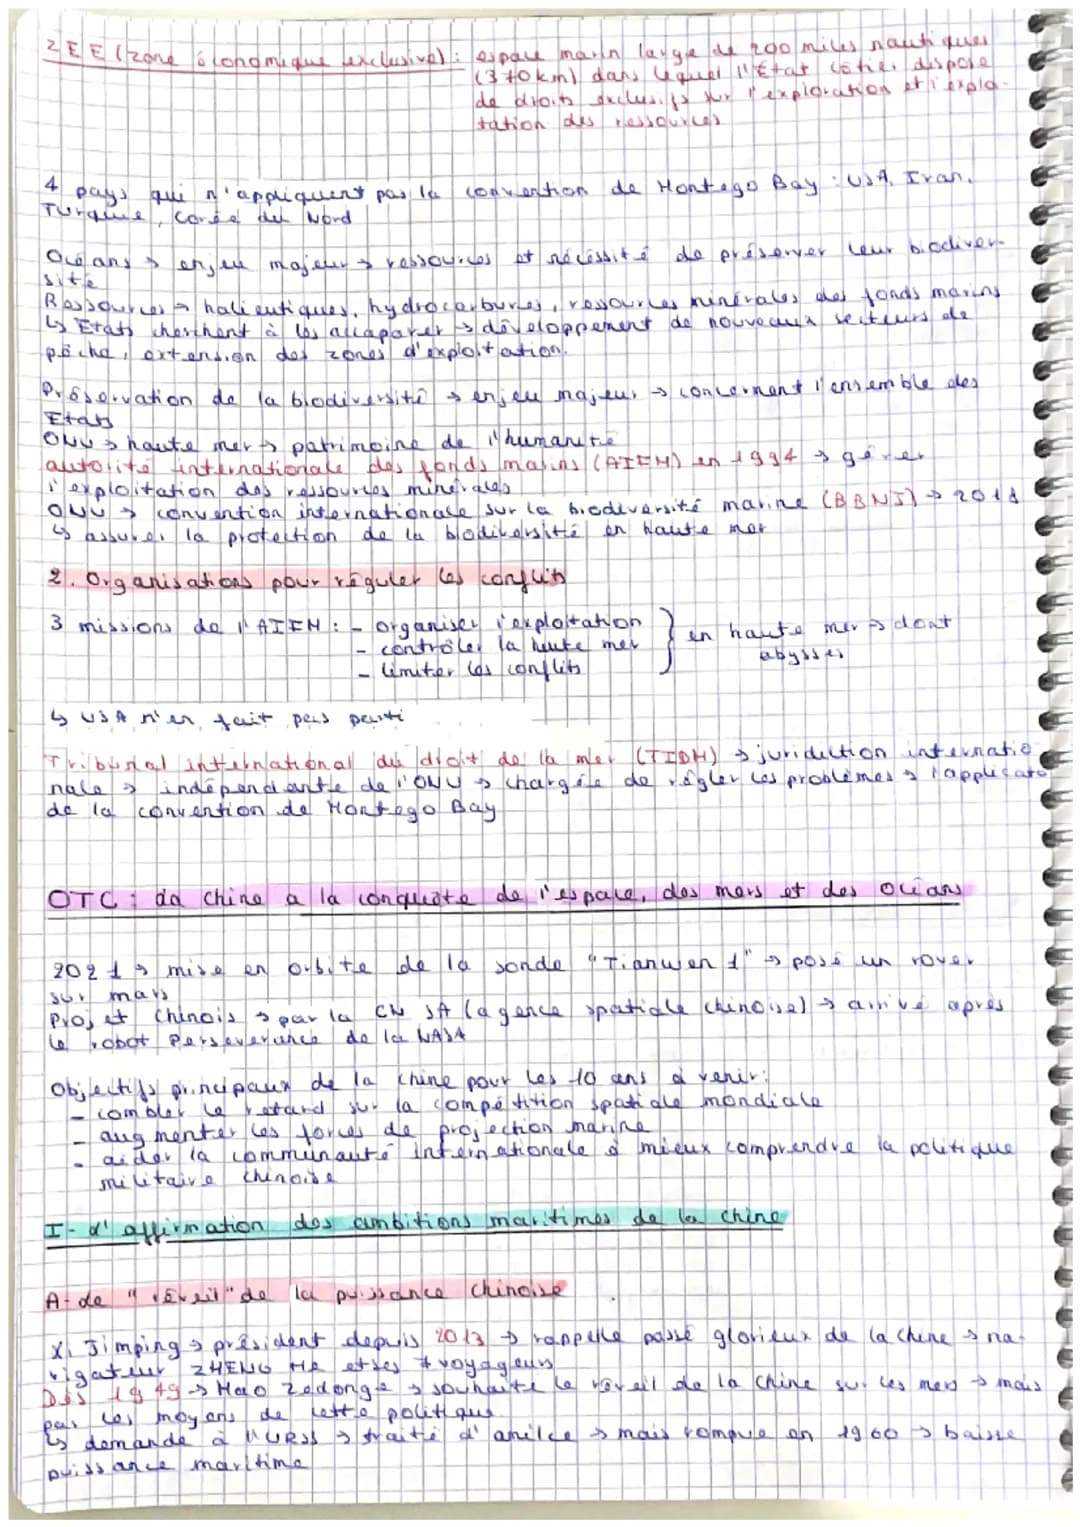 ZEE (zone économique exclusive) : espace marin large de 200 miles nautiques
(370km) dans lequel l'Etat côtier dispose
de droits exclusifs sur l'exploration et l'explo-
tation des ressources
4 pays qui n'appliquent pas la convention de Montego Bay : USA, Iran,
Turquie, Corée du Nord
Océans → enjeu majeur → ressources et nécéssité de préserver leur biodiver-
sité
Ressources → halieutiques, hydrocarbures, ressources minérales des fonds marins
↳ Etats cherchent à les accaparer → développement de nouveaux secteurs de
pêche, extension des zones d'exploitation.
Préservation de la biodiversité → enjeu majeur → concernant l'ensemble des
Etats
ONU → haute mer → patrimoine de l'humanité
autorité internationale des fonds marins (AIFM) en 1994 → gérer
l'exploitation des ressources minérales
ONU → convention internationale sur la biodiversité marine (BBNJ) → 2018
↳ assurer la protection de la biodiversité en haute mer
2. Organisations pour réguler les conflits
3 missions de l'AIFM : - organiser l'exploitation
- contrôler la haute mer
- limiter les conflits
en haute mer → dont
abysses
↳ USA n'en fait pas parti
Tribunal international du droit de la mer (TIDM) → juridiction internatio-
nale → indépendante de l'ONU → chargée de régler les problèmes → l'applicato
de la convention de Montego Bay
OTC : La Chine a la conquête de l'espace, des mers et des océans
2021 → mise en orbite de la sonde "Tianwen 1" → posé un rover
sur mars
Projet chinois → par la CNSA (agence spatiale chinoise) → arrivé après
le robot Perseverance de la NASA
Objectifs principaux de la chine pour les 10 ans à venir:
- combler le retard sur la compétition spatiale mondiale
- augmenter les forces de projection marine
- aider la communauté internationale à mieux comprendre la politique
militaire chinoise
I- L'affirmation des ambitions maritimes de la chine
A- Le "réveil" de la puissance chinoise
Xi Jimping → président depuis 2013 → rappelle passé glorieux de la chine → na-
vigateur ZHENG HE et ses 7 voyageurs
Dès 1949 → Mao Zedonge → souhaite le réveil de la Chine sur les mers → mais
pas les moyens de cette politique
↳ demande à l'URSS → traité d'anilce → mais rompue en 1960 → baisse
puissance maritime